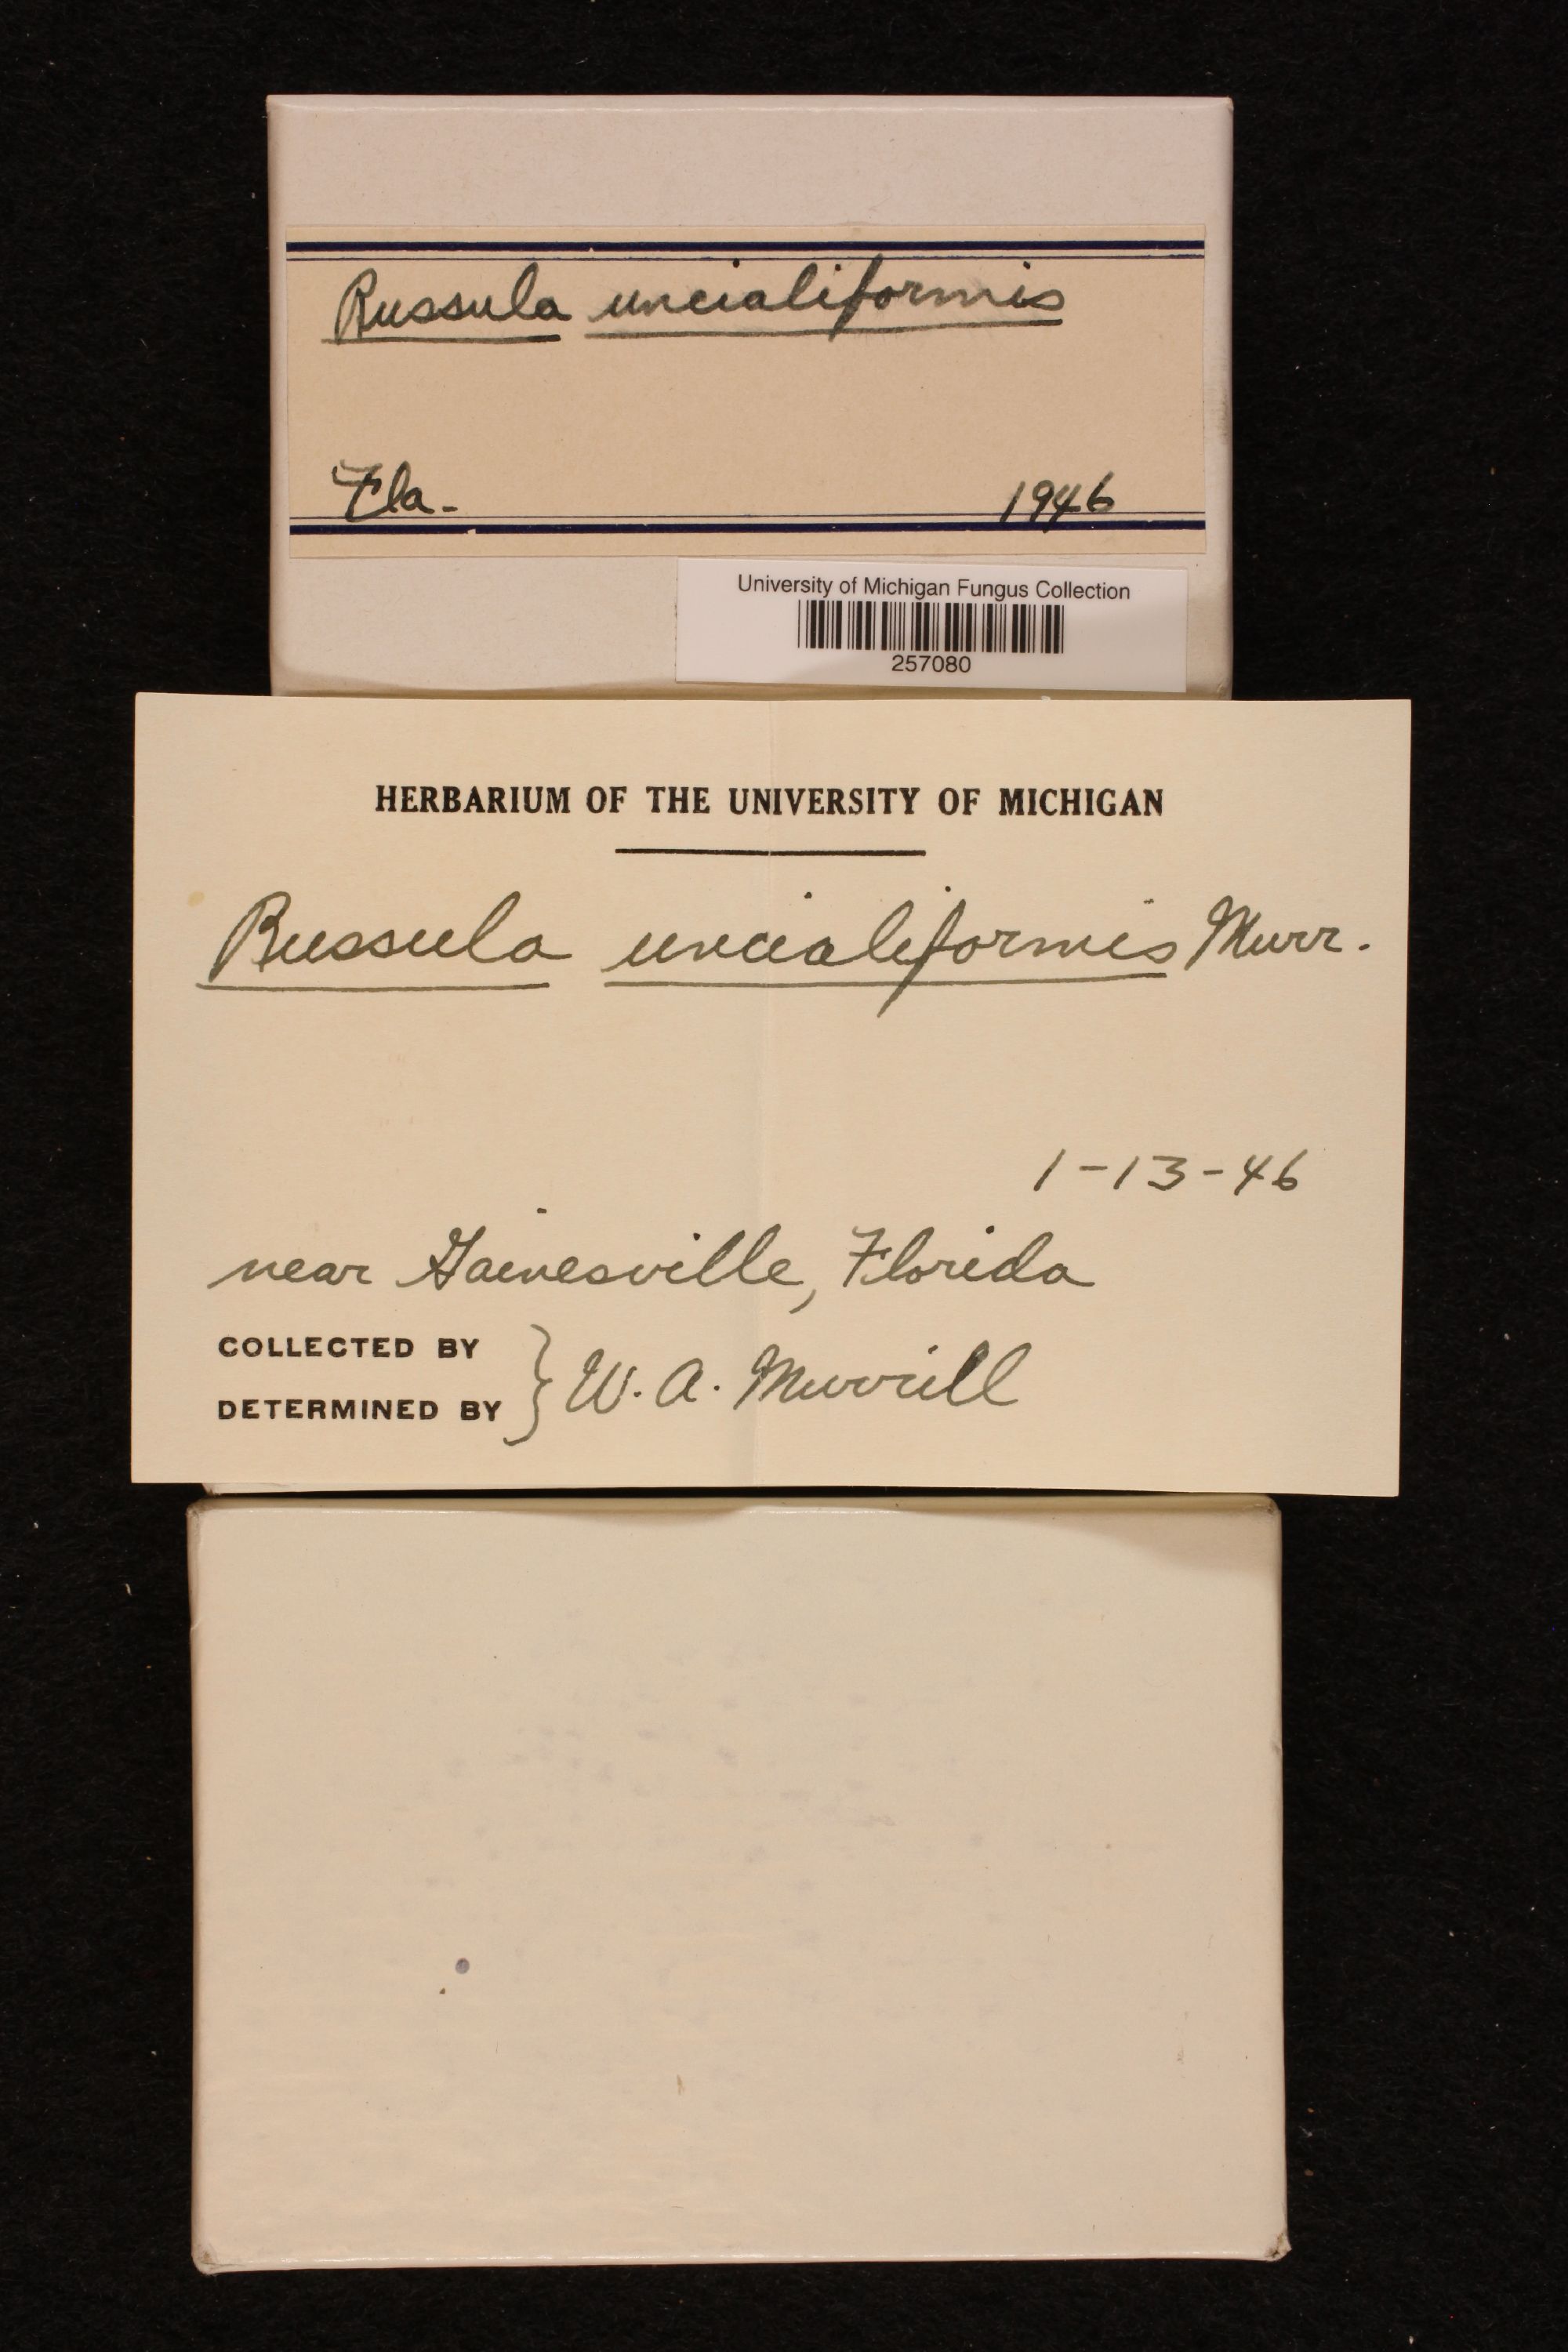 Russula uncialiformis
Fla-
1946
University of Michigan Fungus Collection
257080
HERBARIUM OF THE UNIVERSITY OF MICHIGAN
Russula uncialiformis Murr.
1-13-46
near Gainesville, Florida
COLLECTED BY
DETERMINED BY } W. A. Murrill